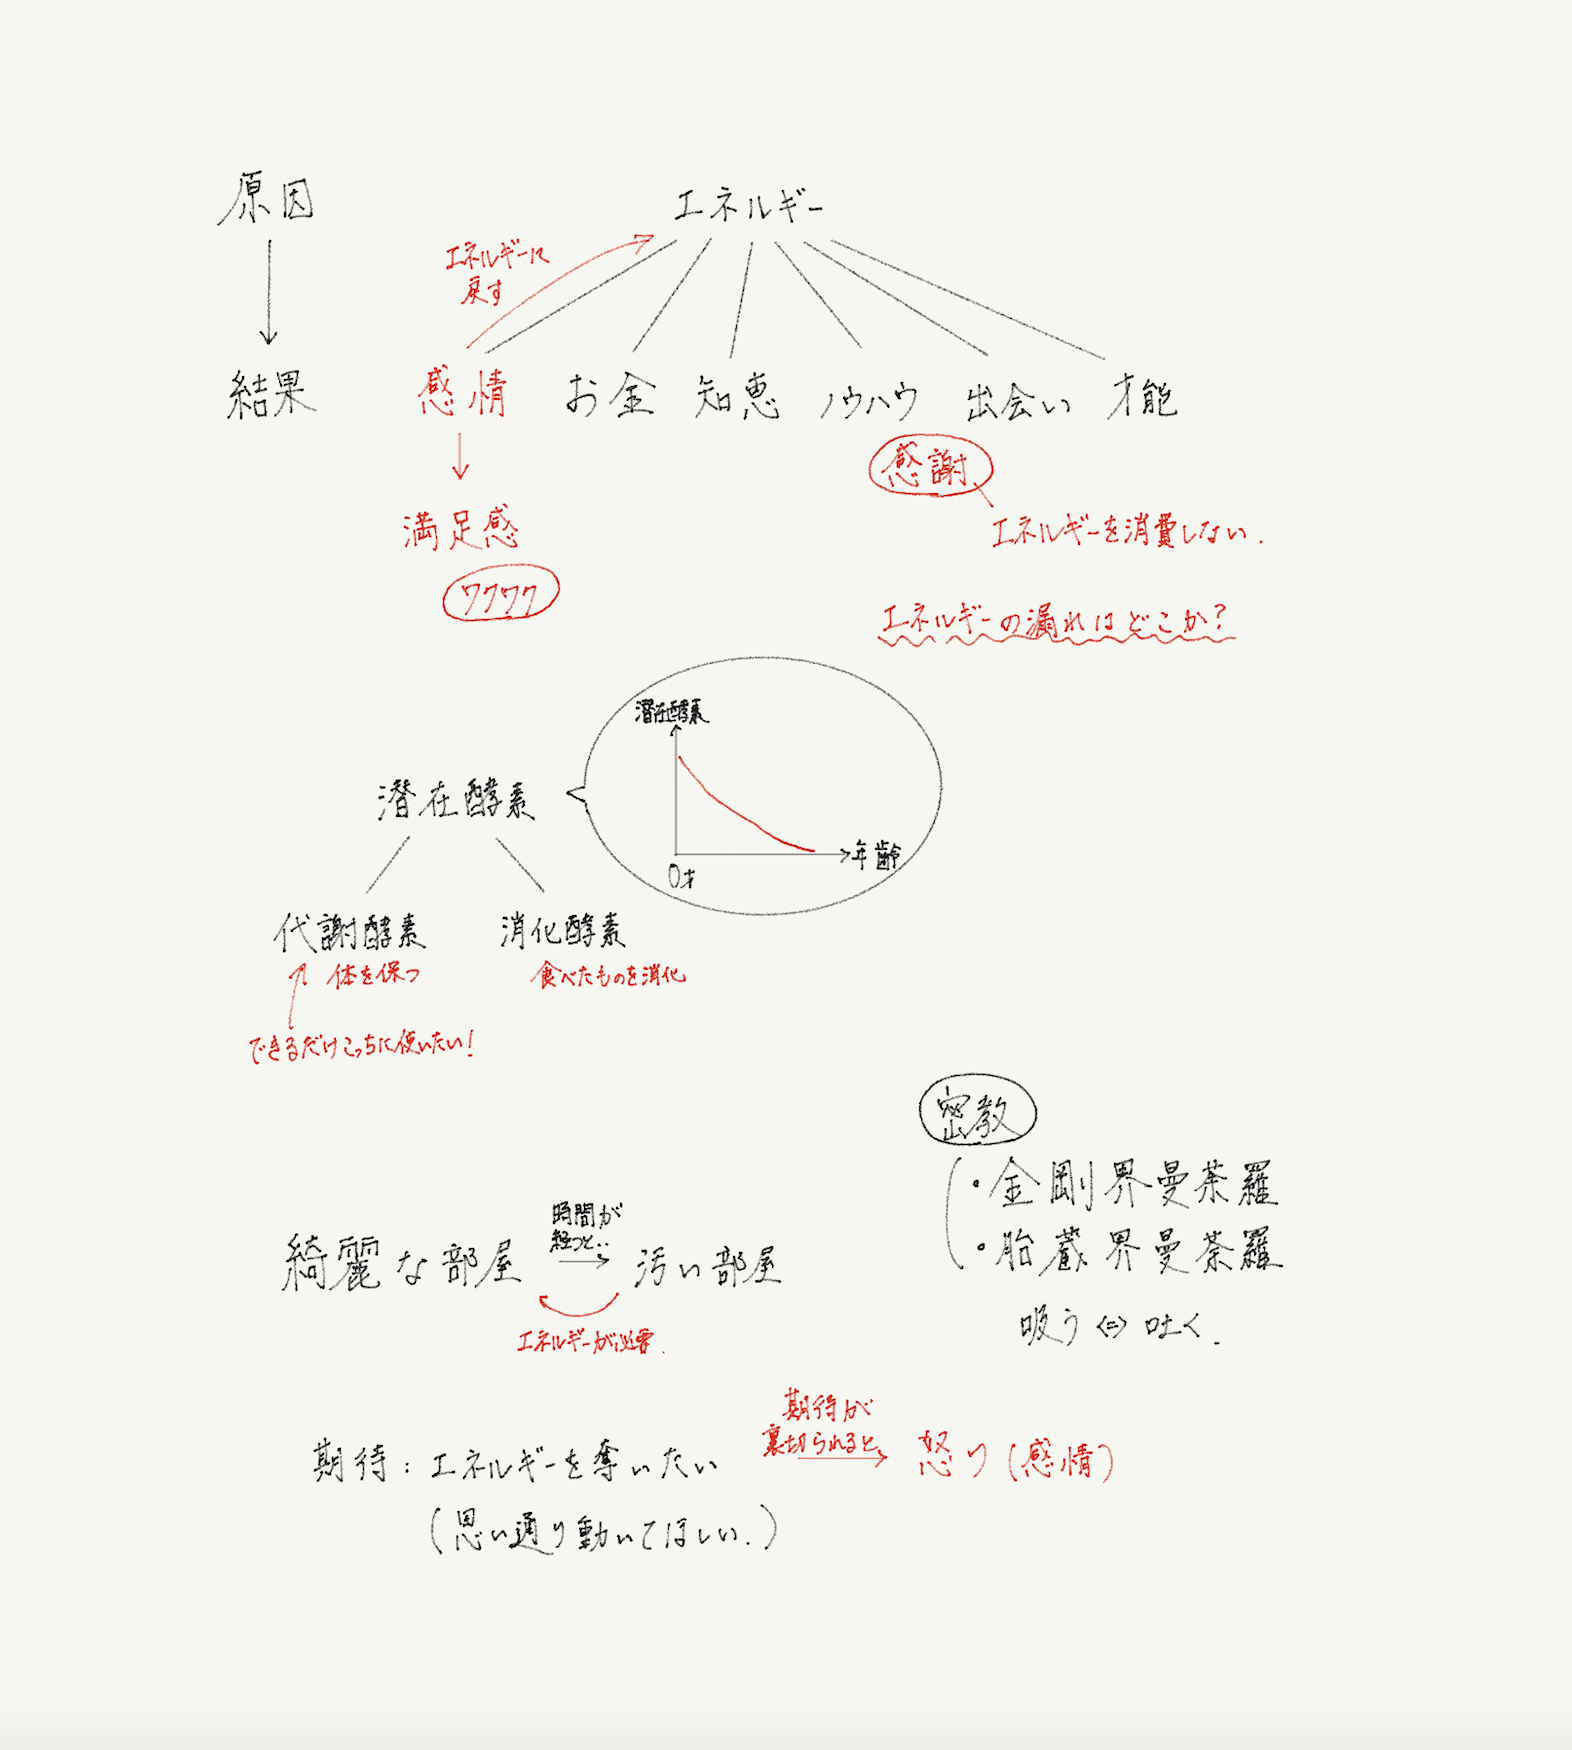 原因
エネルギー
エネルギーに
戻す
結果
感情
お金
知恵
ノウハウ
出会い
才能
感謝
満足感
エネルギーを消費しない.
ワクワク
エネルギーの漏れはどこか?
潜在酵素
潜在酵素
年齢
0才
代謝酵素
消化酵素
体を保つ
食べたものを消化
できるだけこっちに使いたい!
密教
・金剛界曼荼羅
・胎蔵界曼荼羅
吸う⇔吐く.
時間が
経つと..
綺麗な部屋
汚い部屋
エネルギーが必要.
期待が
裏切られると、
期待:エネルギーを奪いたい
怒り(感情)
(思い通り動いてほしい.)